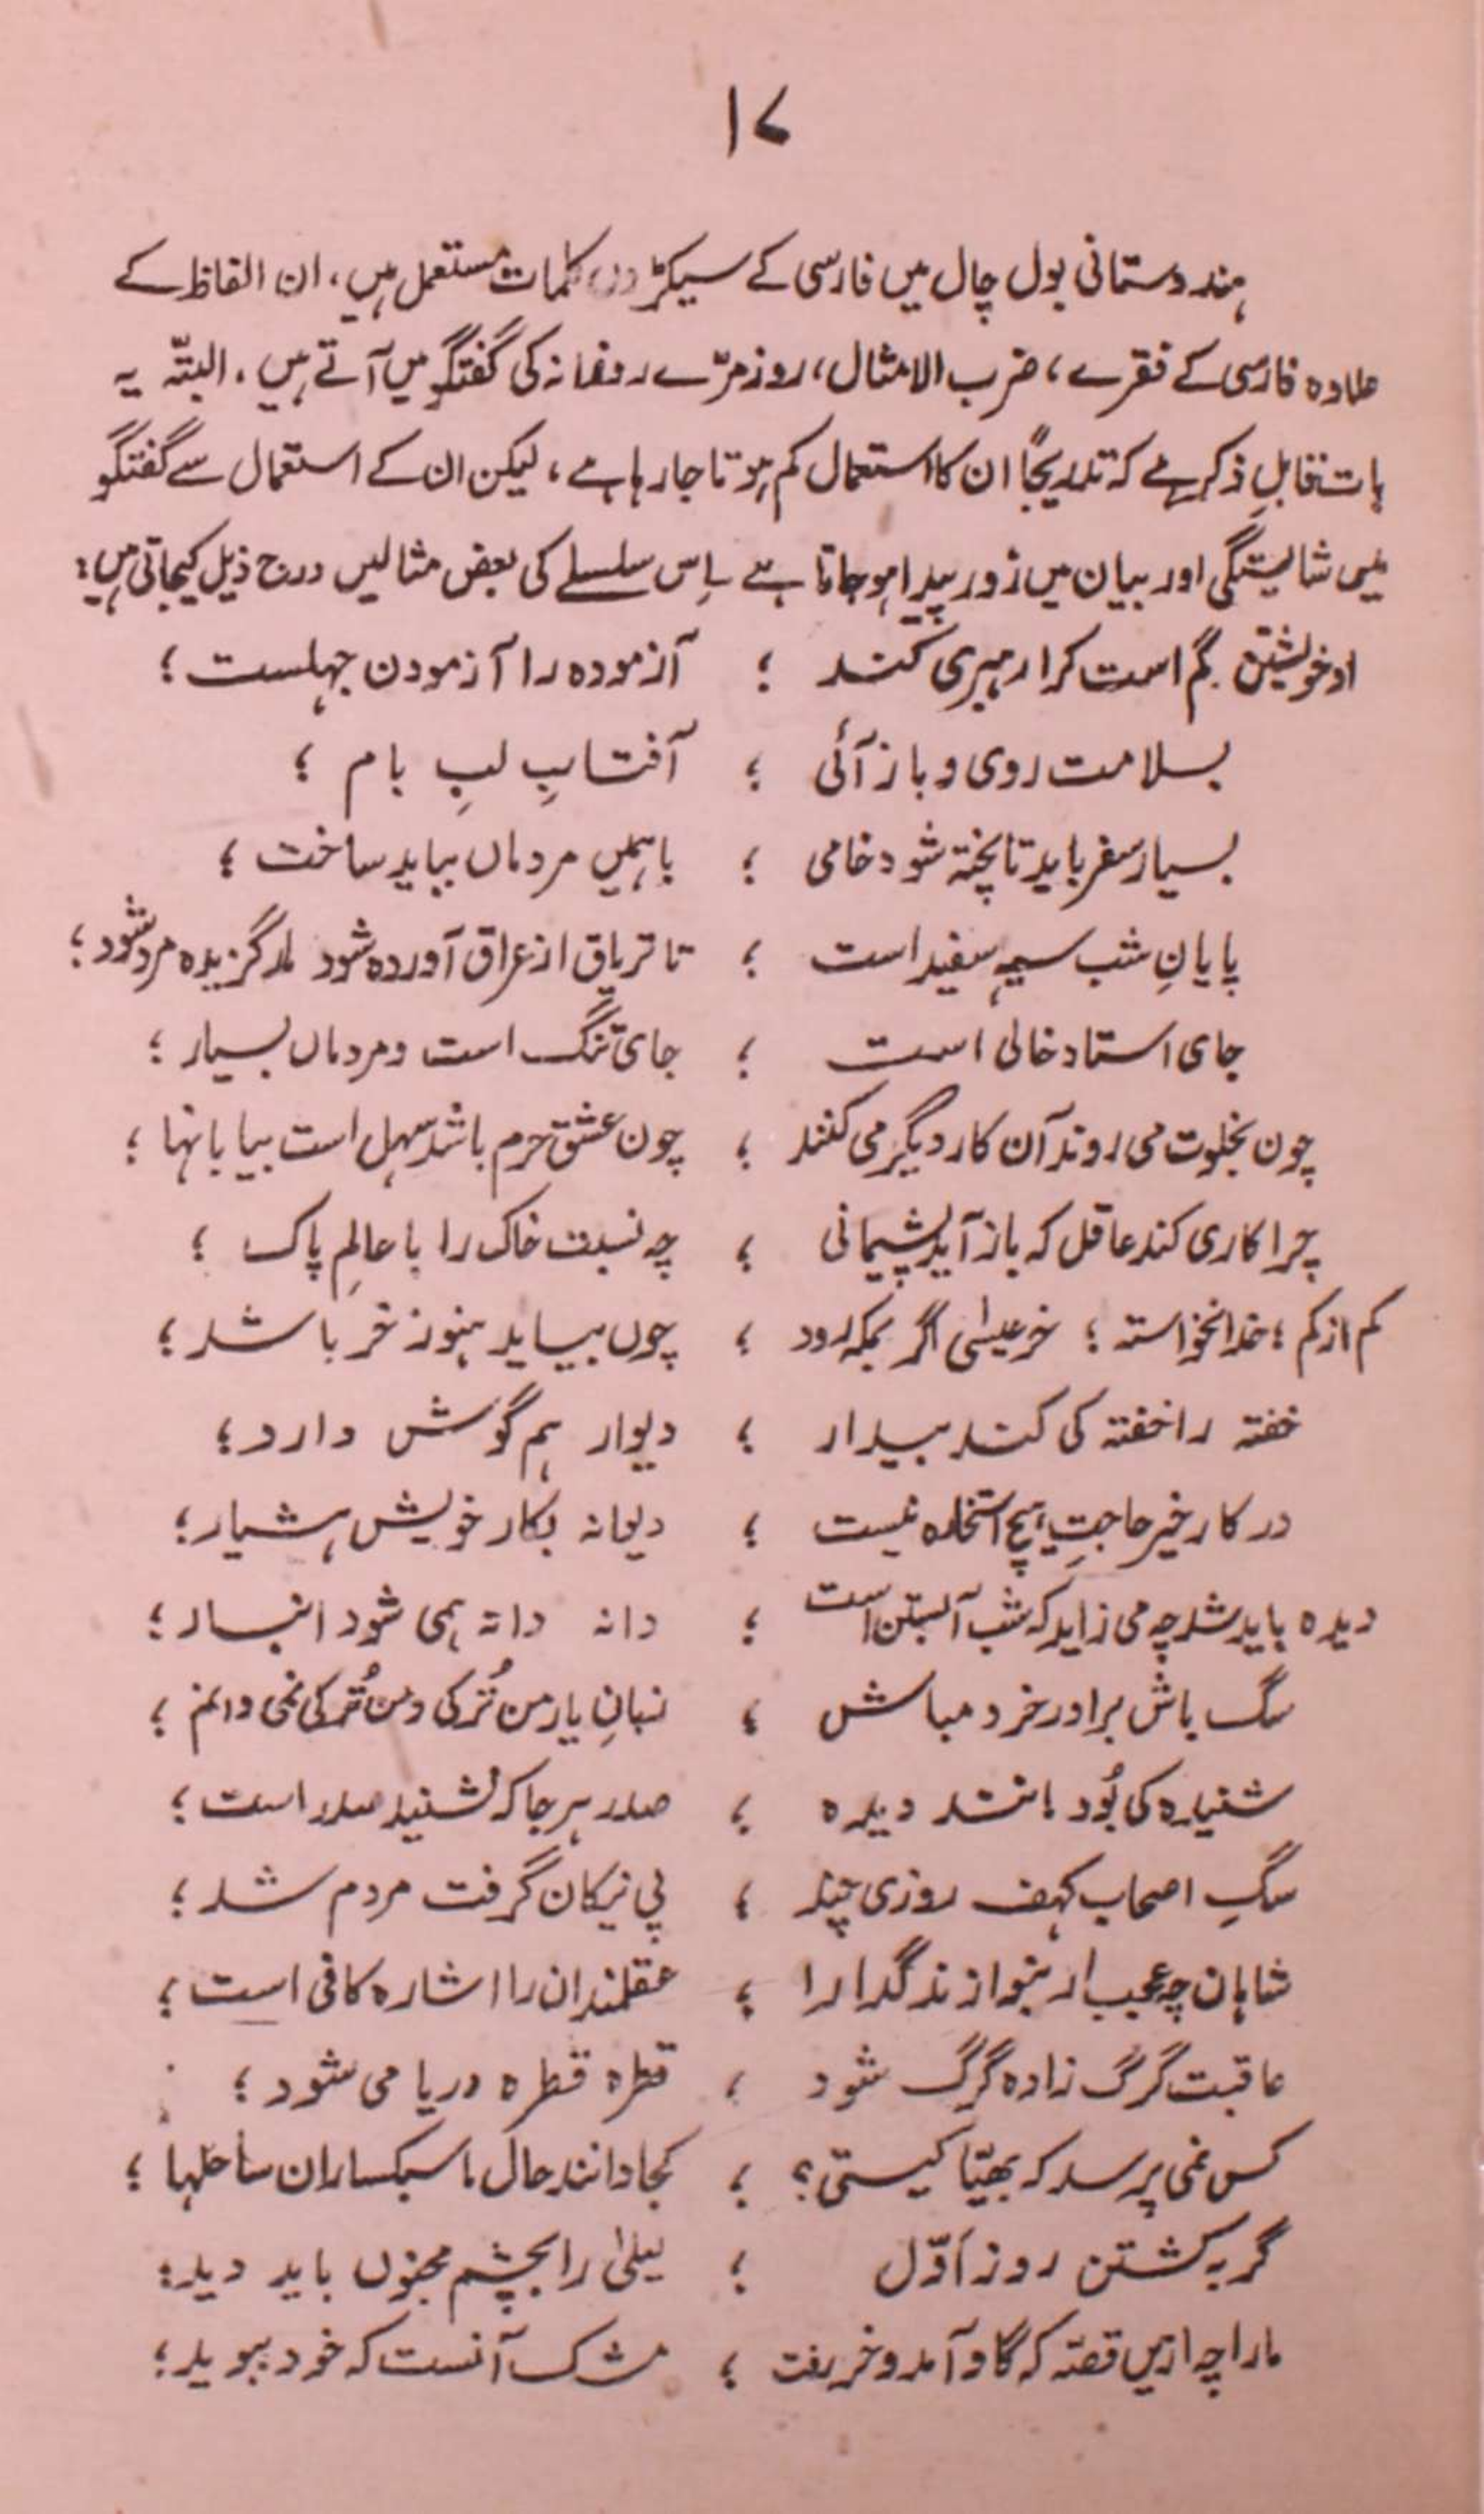 ۱۷
ہندوستانی بول چال میں فارسی کے سیکڑوں کلمات مستعمل ہیں، ان الفاظ کے
علاوہ فارسی کے فقرے، ضرب الامثال، روزمرّے روزانہ کی گفتگو میں آتے ہیں. البتّہ یہ
بات قابلِ ذکر ہے کہ تدریجاً ان کا استعمال کم ہوتا جا رہا ہے، لیکن ان کے استعمال سے گفتگو
میں شایستگی اور بیان میں زور پیدا ہو جاتا ہے اِس سلسلے کی بعض مثالیں درج ذیل کیجاتی ہیں:
او خویشتن گم است کرا رہبری کند ؛ آزمودہ را آزمودن جہلست ؛
بسلامت روی و باز آئی ؛ آفتابِ لبِ بام ؛
بسیار سفر باید تا پختہ شود خامی ؛ باہمیں مردماں بباید ساخت ؛
پایانِ شب سیہ سفید است ؛ تا تریاق از عراق آوردہ شود مارگزیدہ مردہ شود ؛
جای استاد خالی است ؛ جای تنگ است و مردماں بسیار ؛
چون بخلوت می روند آن کار دیگر می کنند ؛ چون عشق حرم باشد سہل است بیابانہا ؛
چرا کاری کند عاقل کہ باز آید پشیمانی ؛ چہ نسبت خاک را با عالمِ پاک ؛
کم از کم ؛ خدانخواستہ ؛ خر عیسٰی اگر بمکہ رود ؛ چوں بیاید ہنوز خر باشد ؛
خفتہ را خفتہ کی کند بیدار ؛ دیوار ہم گوش دارد ؛
در کار خیر حاجتِ ہیچ استخارہ نیست ؛ دیوانہ بکار خویش ہشیار ؛
دیدہ باید شد چہ می زاید کہ شب آبستن است ؛ دانہ دانہ ہمی شود انبار ؛
سگ باش برادر خرد مباش ؛ زبانِ یار من تُرکی و من تُرکی نمی دانم ؛
شنیدہ کی بُود مانند دیدہ ؛ صدر ہر جا کہ نشنید صدر است ؛
سگِ اصحاب کہف روزی چند ؛ پی نیکان گرفت مردم شد ؛
شاہان چہ عجب ار بنوازند گدا را ؛ عقلمندان را اشارہ کافی است ؛
عاقبت گرگ زادہ گرگ شود ؛ قطرہ قطرہ دریا می شود ؛
کس نمی پرسد کہ بھیّا کیستی؟ ؛ کجا دانند حال ما سبکساران ساحلہا ؛
گربہ کشتن روز اَوّل ؛ لیلیٰ را بچشم مجنوں باید دید ؛
مارا چہ ازیں قصّہ کہ گاو آمد و خر رفت ؛ مشک آنست کہ خود ببوید ؛